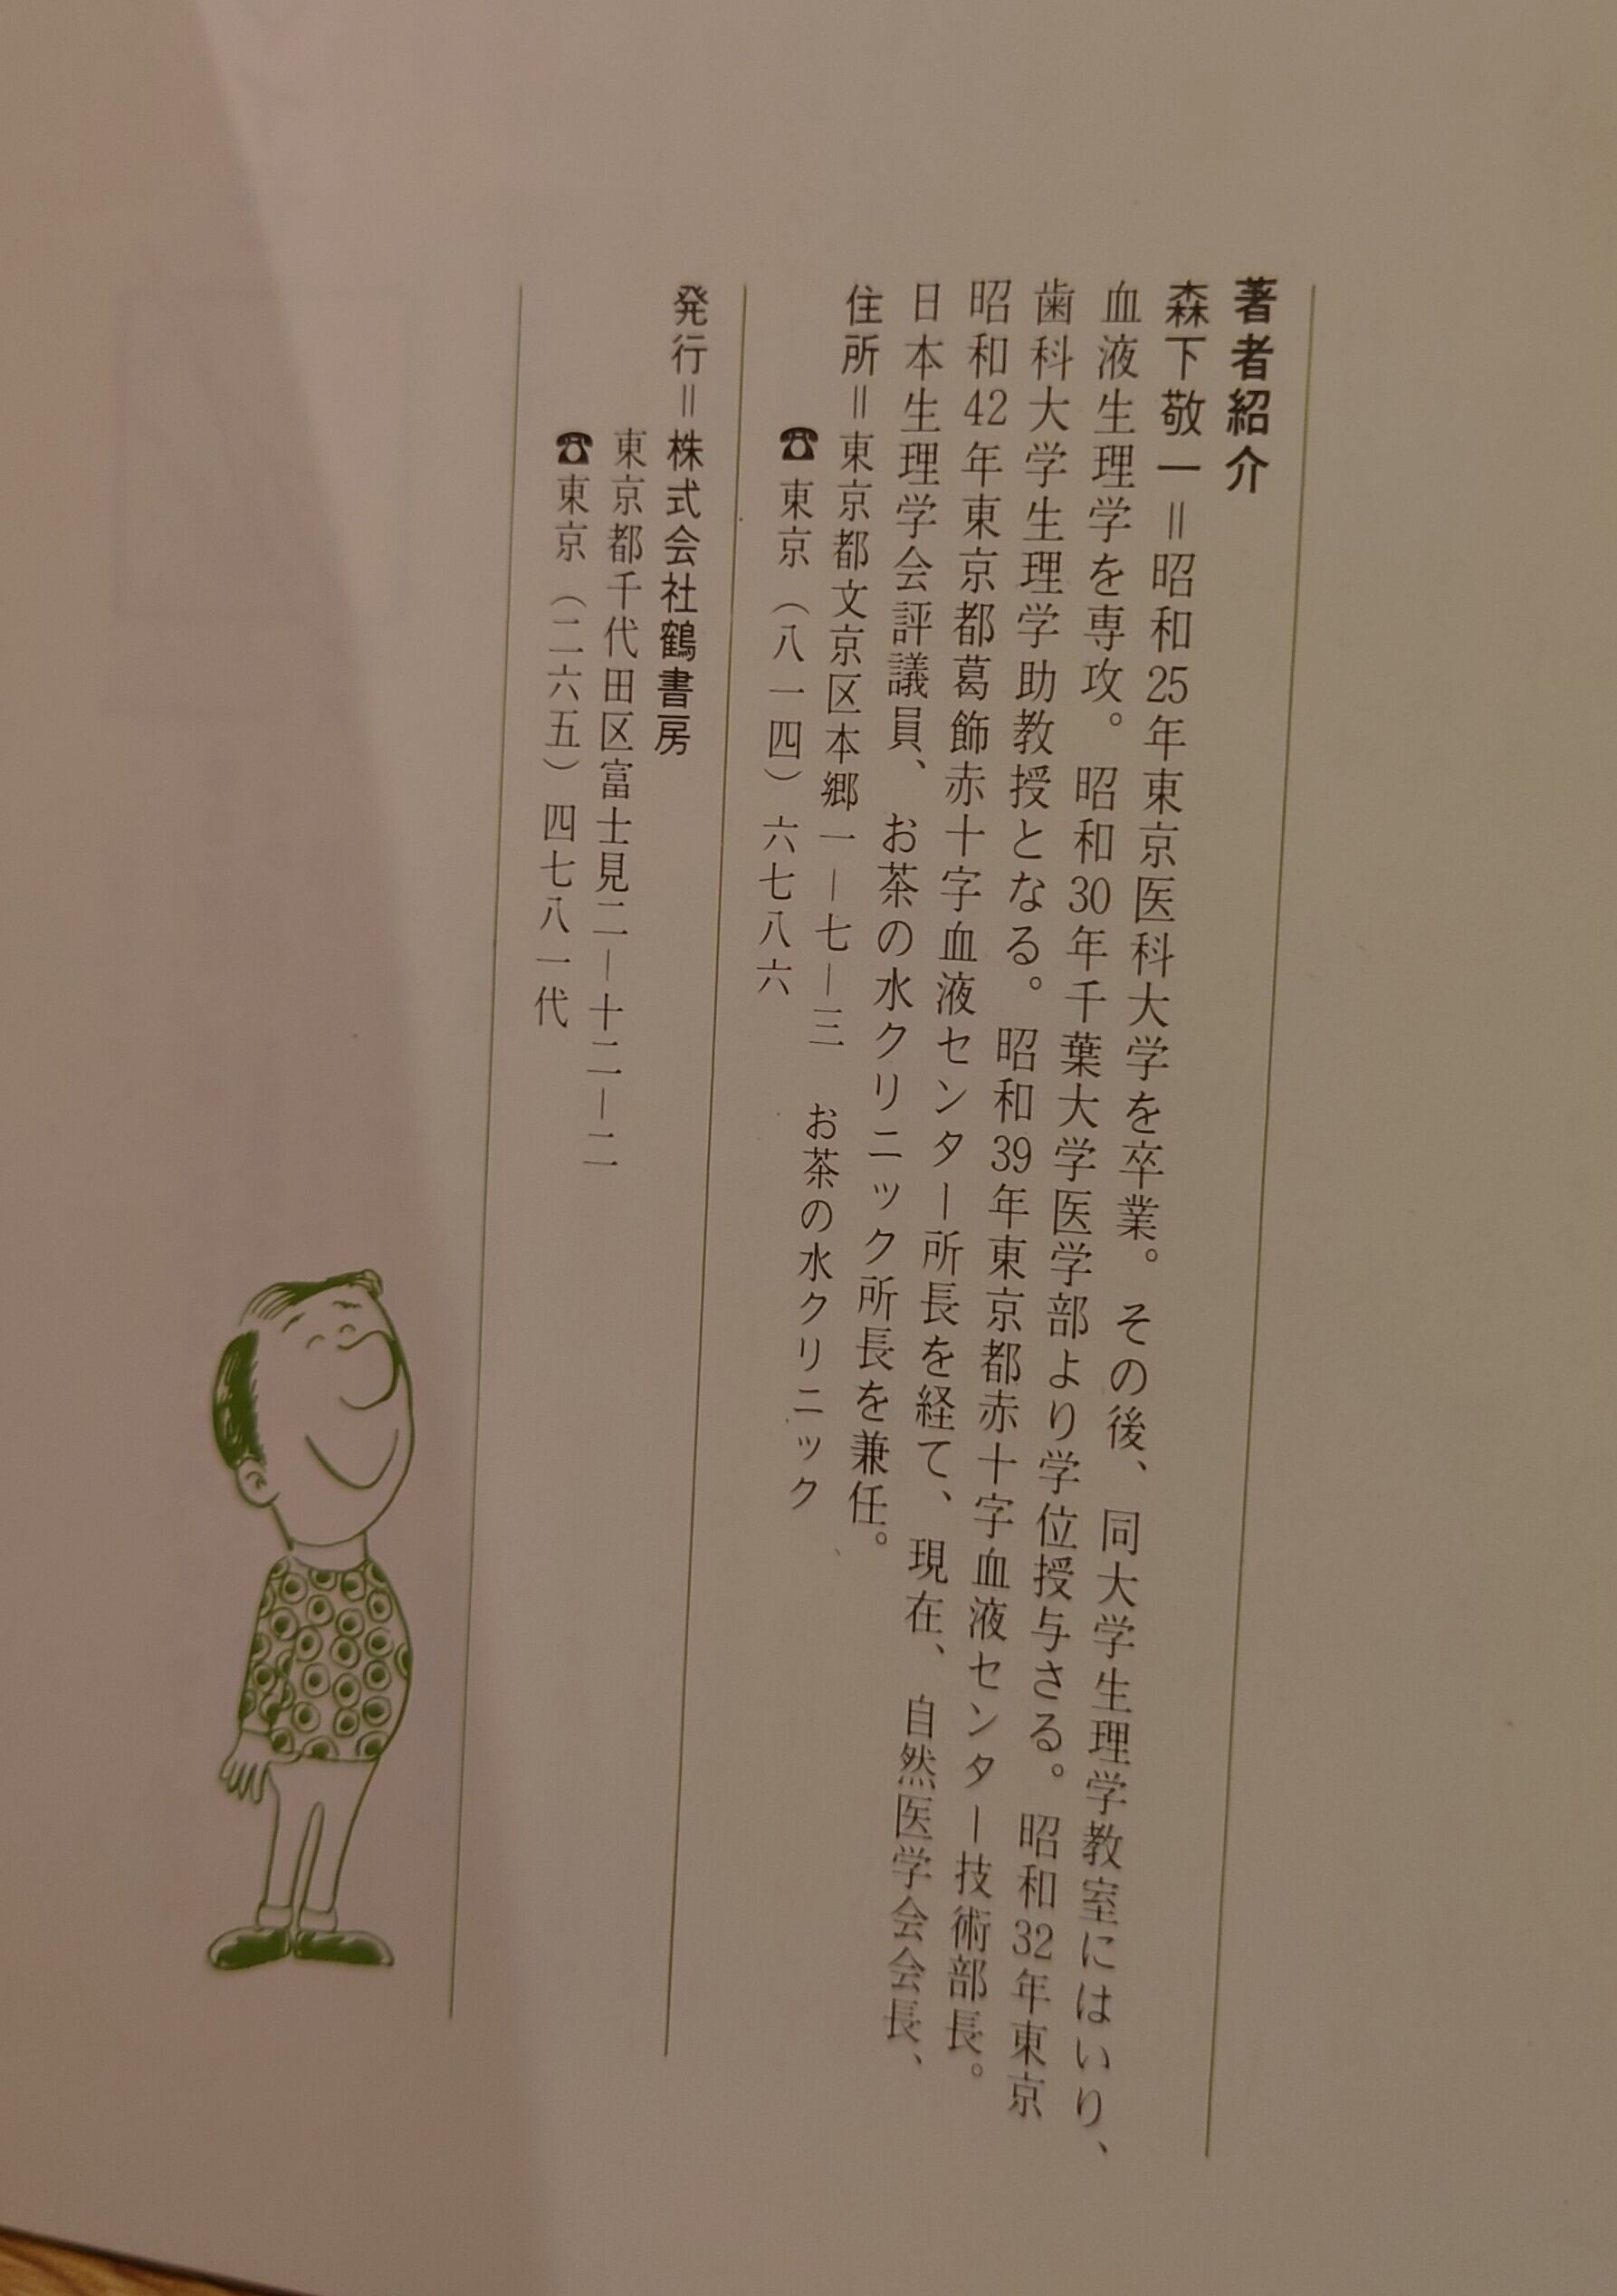 著者紹介
森下敬一＝昭和25年東京医科大学を卒業。その後、同大学生理学教室にはいり、
血液生理学を専攻。昭和30年千葉大学医学部より学位授与さる。昭和32年東京
歯科大学生理学助教授となる。昭和39年東京都赤十字血液センター技術部長。
昭和42年東京都葛飾赤十字血液センター所長を経て、現在、自然医学会会長、
日本生理学会評議員、お茶の水クリニック所長を兼任。
住所＝東京都文京区本郷一ー七ー三　お茶の水クリニック
☎東京（八一四）六七八六
発行＝株式会社鶴書房
東京都千代田区富士見二ー十二ー二
☎東京（二六五）四七八一代